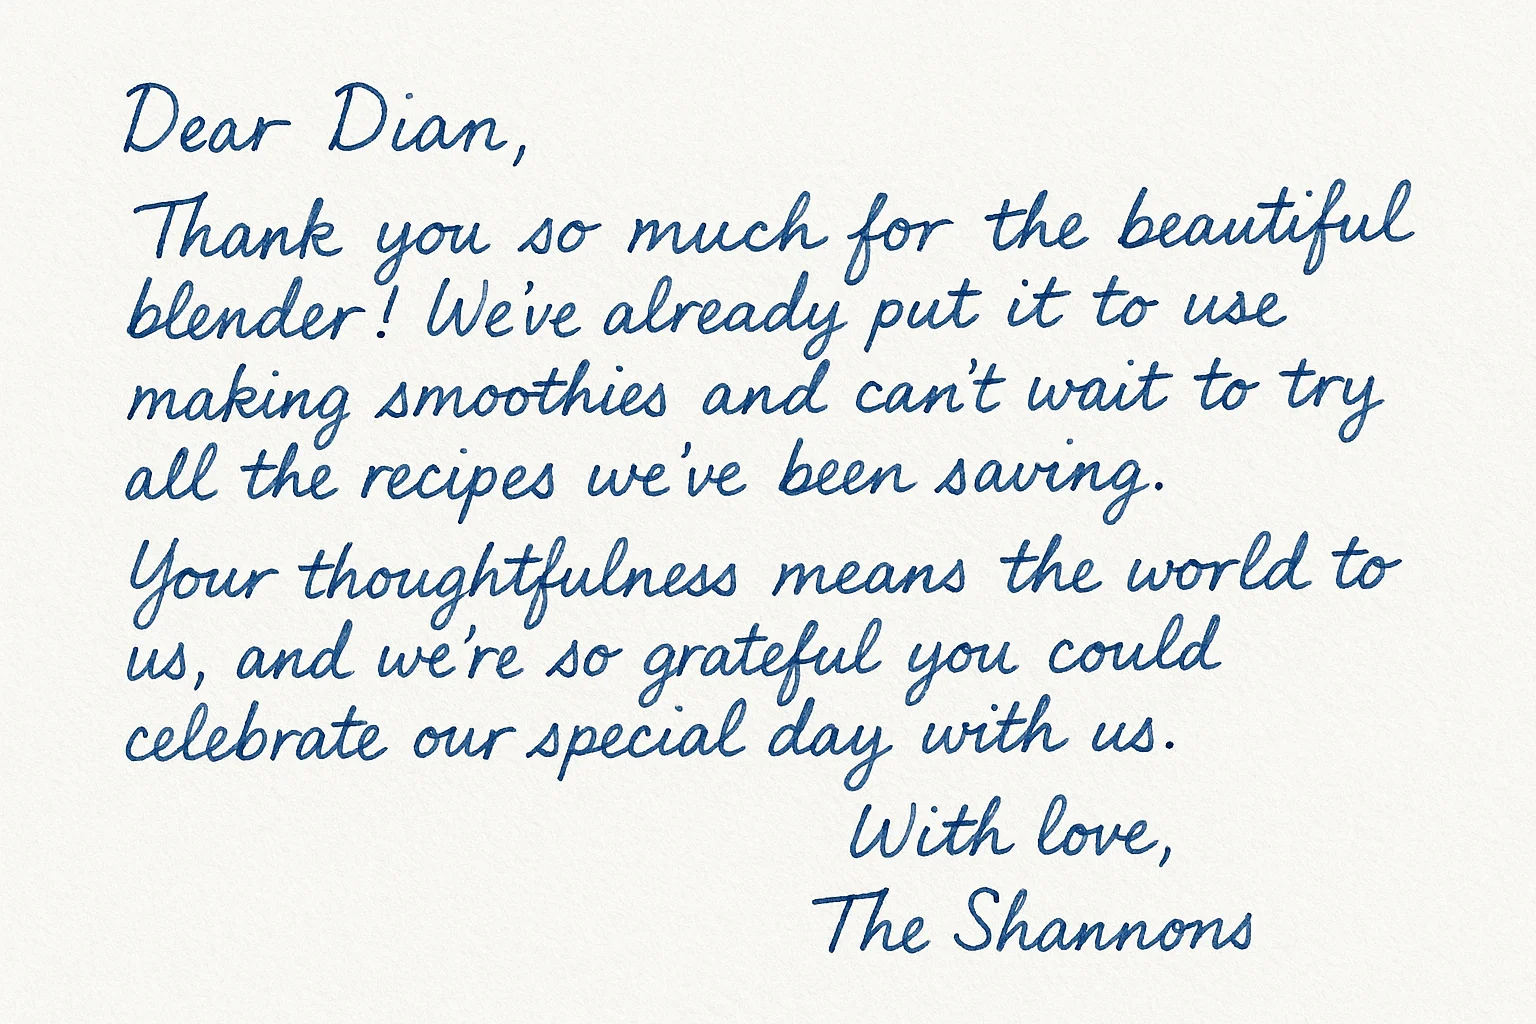 Dear Dian,
Thank you so much for the beautiful
blender! We've already put it to use
making smoothies and can't wait to try
all the recipes we've been saving.
Your thoughtfulness means the world to
us, and we're so grateful you could
celebrate our special day with us.
With love,
The Shannons